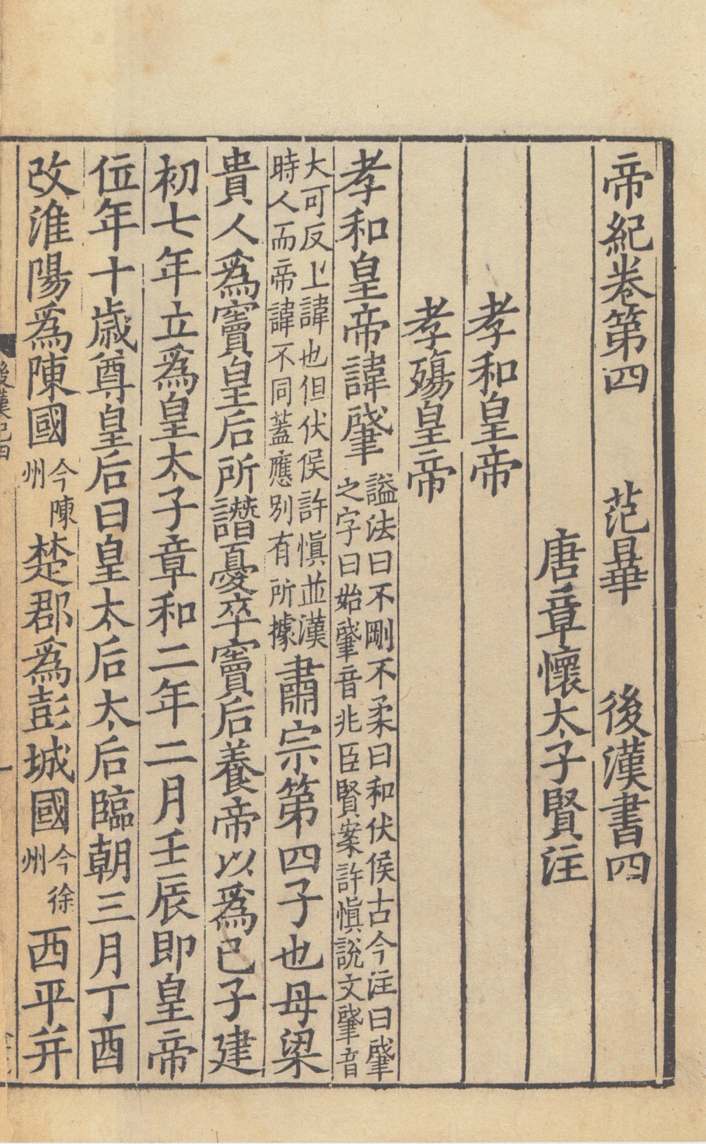 帝紀卷第四 范曅 後漢書四
唐章懷太子賢注
孝和皇帝
孝殤皇帝
孝和皇帝諱肇 謚法曰不剛不柔曰和伏侯古今注曰肈
之字曰始肈音兆臣賢案許慎說文肈音
大可反上諱也但伏侯許慎並漢
時人而帝諱不同蓋應別有所據 肅宗第四子也母梁
貴人爲竇皇后所譖憂卒竇后養帝以爲己子建
初七年立爲皇太子章和二年二月壬辰即皇帝
位年十歲尊皇后曰皇太后太后臨朝三月丁酉
改淮陽爲陳國 今陳
州 楚郡爲彭城國 今徐
州 西平并
後漢紀四
一